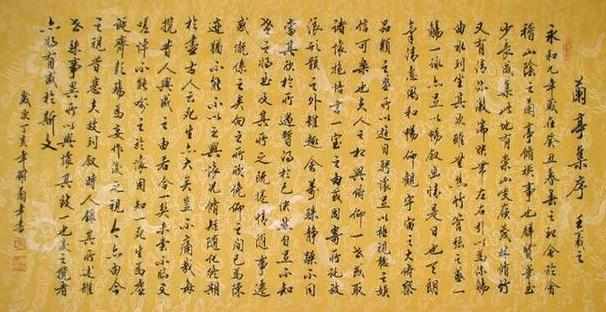 蘭亭集序 王羲之
永和九年歲在癸丑暮春之初會於會
稽山陰之蘭亭修禊事也群賢畢至
少長咸集此地有崇山峻領茂林修竹
又有清流激湍映帶左右引以為流觴
曲水列坐其次雖無絲竹管弦之盛一
觴一詠亦足以暢敘幽情是日也天朗
氣清惠風和暢仰觀宇宙之大俯察
品類之盛所以遊目騁懷足以極視聽之娛
信可樂也夫人之相與俯仰一世或取
諸懷抱悟言一室之內或因寄所託放
浪形骸之外雖趣舍萬殊靜躁不同
當其欣於所遇暫得於己快然自足不知
老之將至及其所之既倦情隨事遷
感慨係之矣向之所欣俛仰之間已為陳
迹猶不能不以之興懷況修短隨化終期
於盡古人云死生亦大矣豈不痛哉每
攬昔人興感之由若合一契未嘗不臨文
嗟悼不能喻之於懷固知一死生為虛
誕齊彭殤為妄作後之視今亦由今
之視昔悲夫故列敘時人錄其所述雖
世殊事異所以興懷其致一也後之攬者
亦將有感於斯文
歲次丁亥年